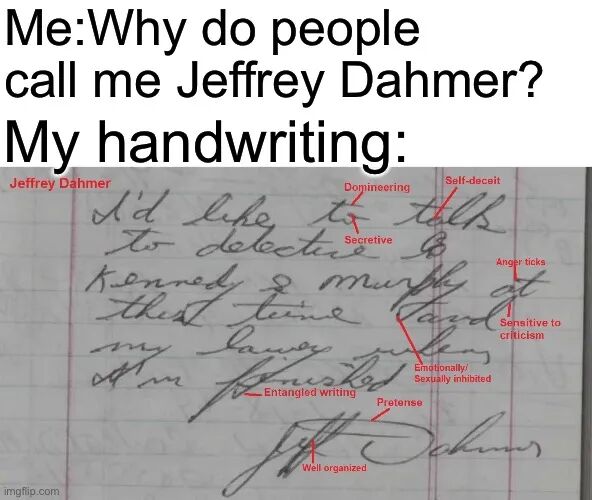 Me:Why do people
call me Jeffrey Dahmer?
My handwriting:
Jeffrey Dahmer
Domineering
Self-deceit
I'd like to talk
Secretive
to detective
Anger ticks
Kennedy & murphy at
this time and
Sensitive to
criticism
my lawer when
Emotionally/
Sexually inhibited
I'm finished
Entangled writing
Pretense
Jeff Dahmer
Well organized
imgflip.com